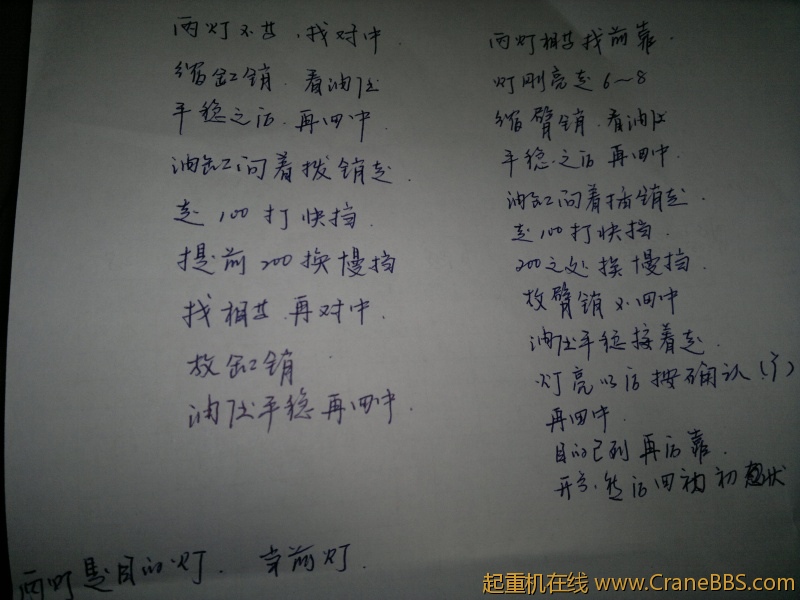 两灯不共.找对中.
缩缸销.看油压
平稳之后.再回中.
油缸向着拨销走.
走100打快挡.
提前200换慢挡
找相共.再对中.
放缸销
油压平稳再回中.
两灯相共找前靠.
灯刚亮走6~8
缩臂销.看油压
平稳.之后再回中.
油缸向着插销走.
走100打快挡.
200之处换慢挡.
放臂销不回中
油压平稳接着走.
灯亮以后按确认(
再回中.
目的已到再后靠.
开关.然后回初状
两灯是目的灯.当前灯.
起重机在线 www.CraneBBS.com